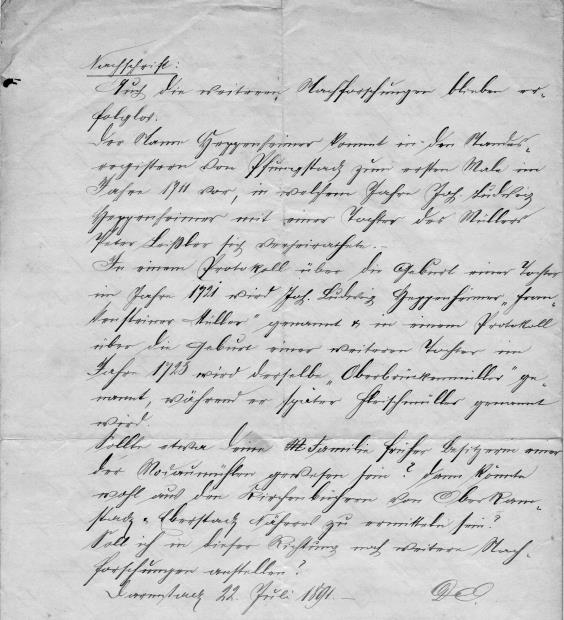 Nachschrift:
Auch die weiteren Nachforschungen blieben er-
folglos.
Der Name Heppenheimer kommt in den Standes-
registern von Pfungstadt zum ersten Male im
Jahre 1711 vor, in welchem Jahre Joh. Ludwig
Heppenheimer mit einer Tochter des Müllers
Peter Leißler sich verheirathete.
In einem Protokoll über die Geburt einer Tochter
im Jahre 1721 wird Joh. Ludwig Heppenheimer „Fran-
kensteiner Müller“ genannt & in einem Protokoll
über die Geburt einer weiteren Tochter im
Jahre 1723 wird derselbe „Oberbrückenmüller“ ge-
nannt, während er später genannt
wird.
Sollte etwa Deine Familie früher Besitzerin einer
der Modaumühlen gewesen sein? Dann könnte
wohl aus den Kirchenbüchern von Ober Ram-
stadt & Eberstadt Näheres zu ermitteln sein?
Soll ich in dieser Richtung noch weitere Nach-
forschungen anstellen?
Darmstadt 22. Juli 1891.